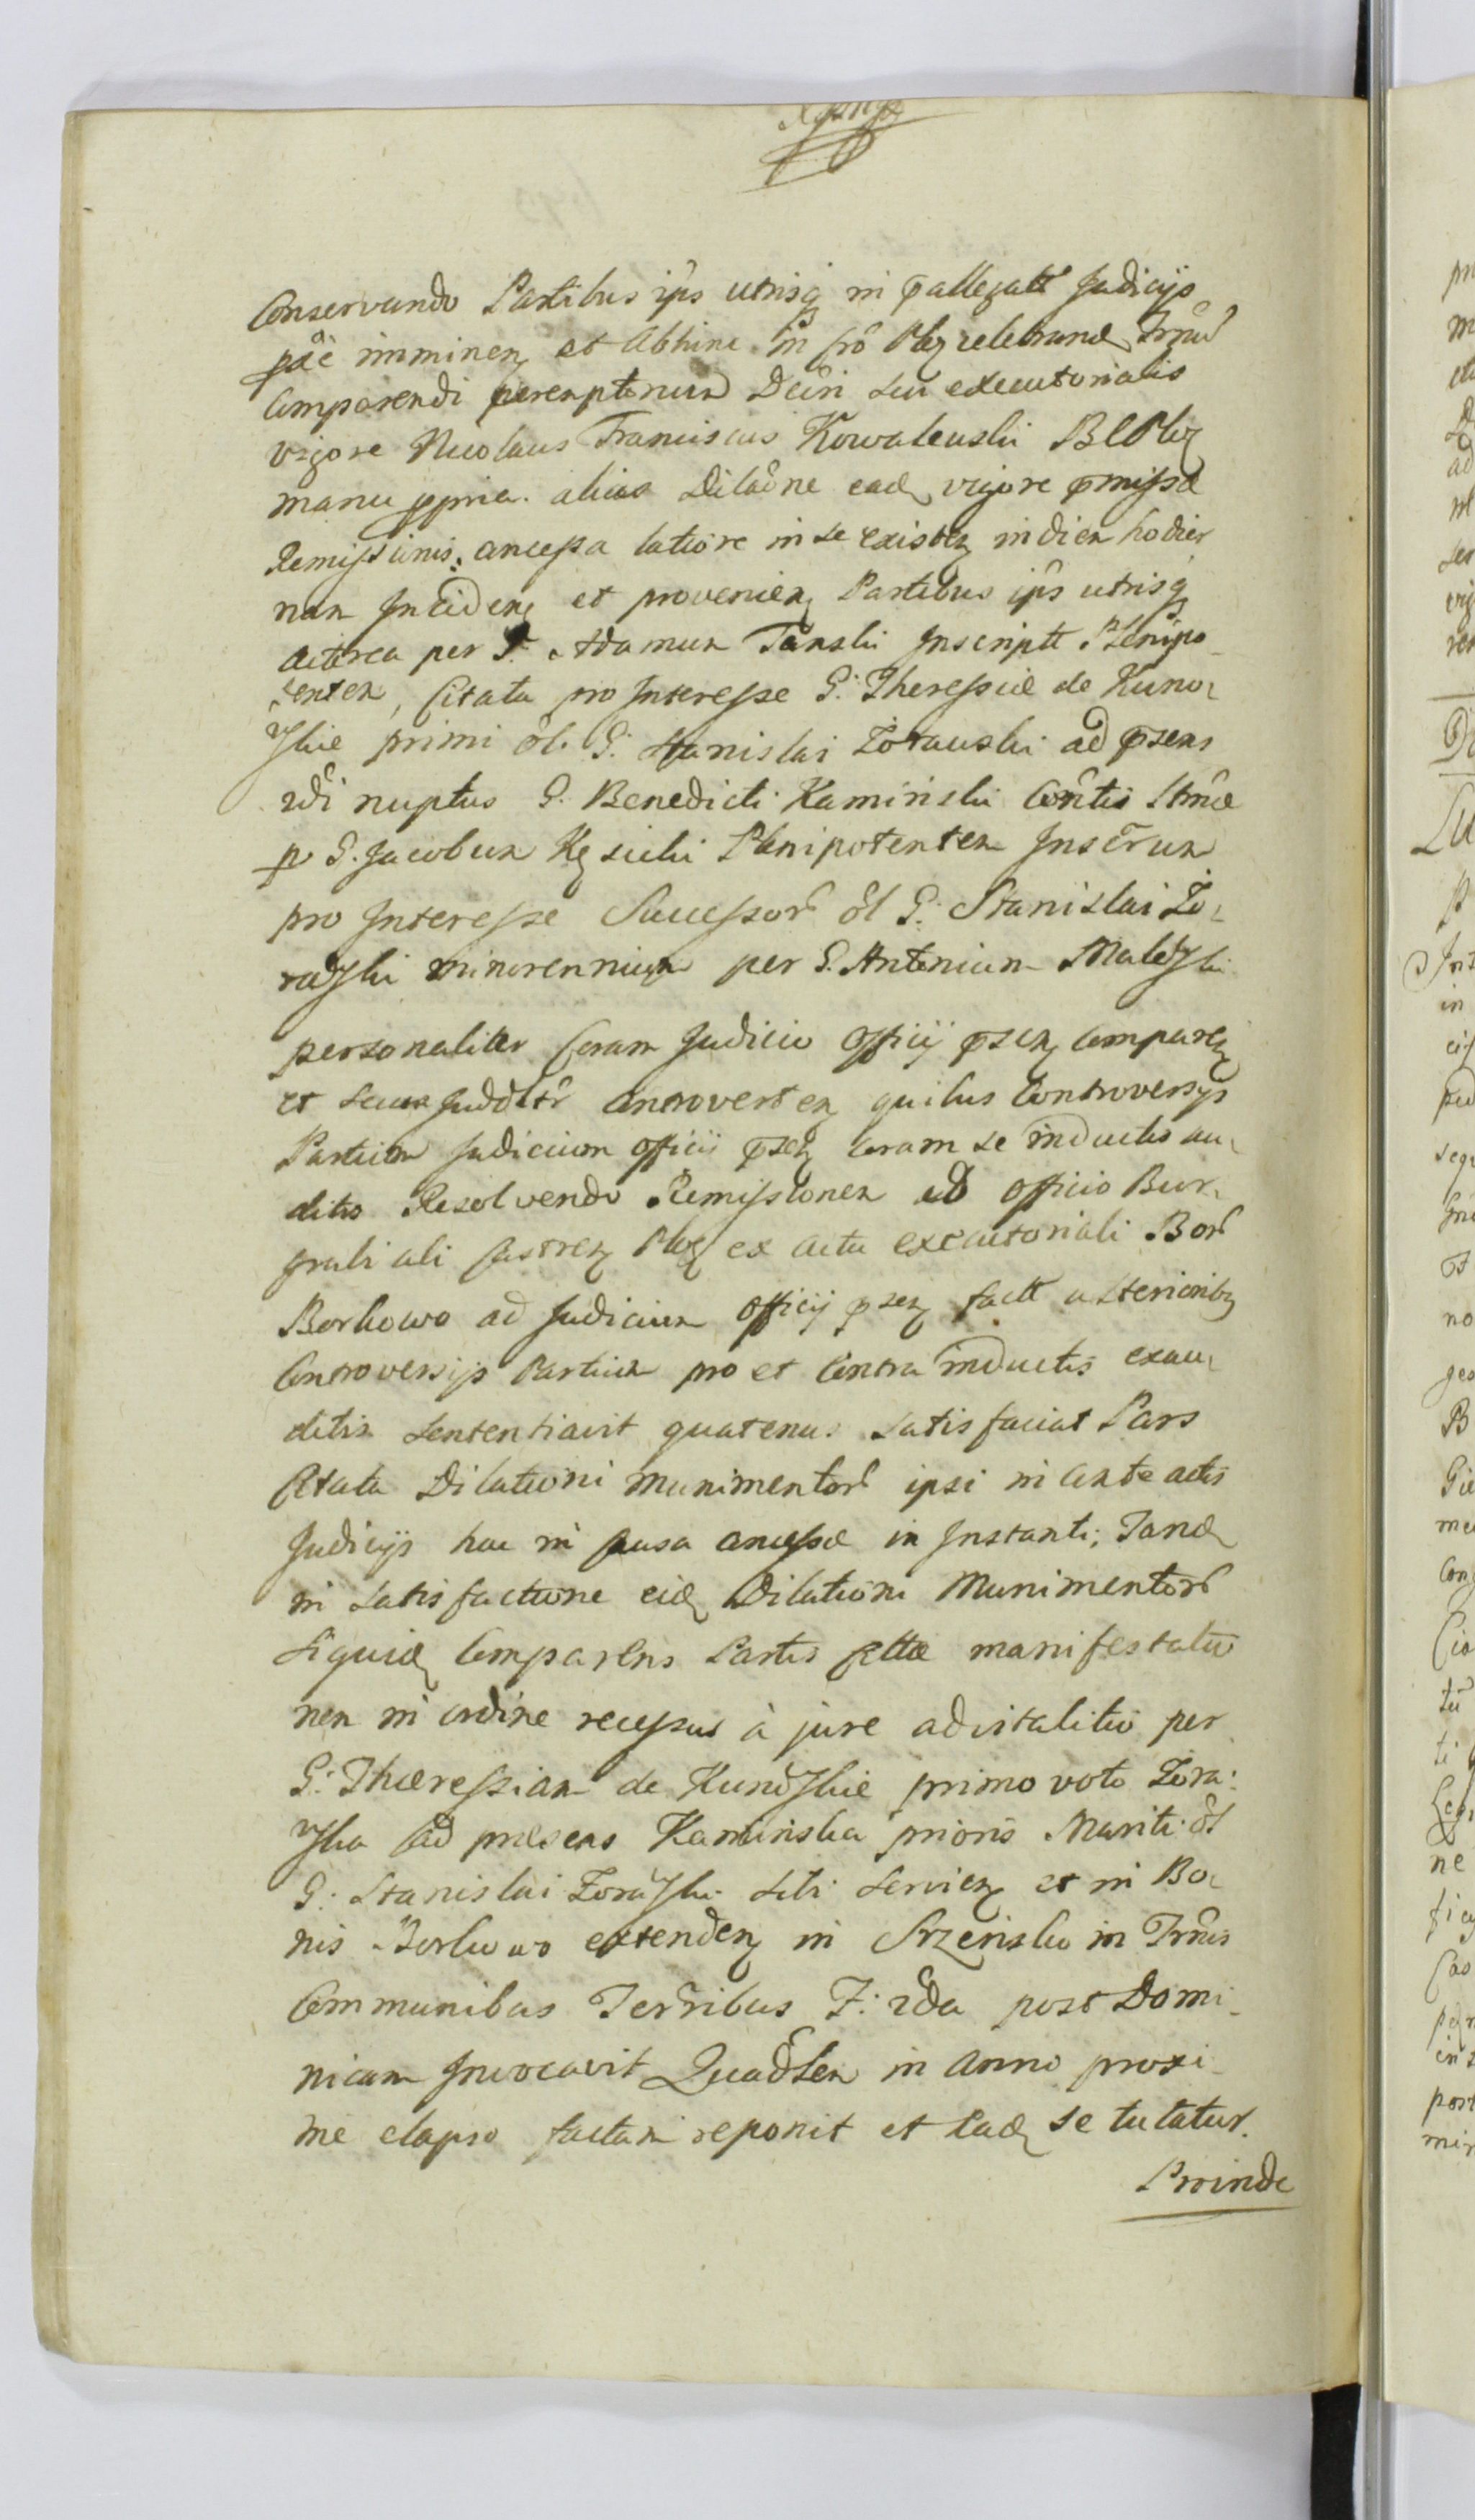 Conservando Partibus ips utrisq in pallegatt Judicijs
imminen et abhinc in celebrand
Comparendi peremptorium Decri seu executorialis
vigore Nicolaus Franciscus Kowalewski
manu ppria. alias Dilaone ead vigore pmissæ
Remissionis, ancessa latiore in se existen in diem hodier
nam Inciden et provenien Partibus ips utrisq
actorea per G. Adamum Tanski Inscriptt Plenipo-
tentem, Citata pro Interesse G: Theressiæ de
primi G: Stanislai Zorawski ad psens
2di nuptus G. Benedicti Kaminski
p G. Jacobum Plenipotentem
pro Interesse Successor ol G: Stanislai Zo-
rawski minorennium per G. Antonium
personaliter Coram Judicio Officij psen Comparen
et controverten quibus Controversijs
Partium Judicium officii psen coram se inductis au-
ditis Resolvendo Remissionem ab officio Bur-
grabiali Castren ex actu executoriali Bor
Borkowo ad Judicium officij psen fact ulterioribq
Controversijs Partium pro et Contra inductis exau-
ditis sententiavit quatenus satisfaciat Pars
Citata Dilationi munimentor ipsi in ante actis
Judicijs hac in Causa ancessæ in Instanti; Tand
in satisfactione eid Dilationi Munimentor
siquid Comparens Partis manifestatio
nem in ordine recessus à jure advitalitio per
G: Thæressiam de primo voto Zora:
wska ad præsens Kaminska prioris Mariti ol
G: Stanislai Zorawski sibi servien et in Bo-
nis Borkowo extenden in Srzensko in Trmis
Communibus Terribus F: 2da post Domi-
nicam Invocavit Quadslem in Anno proxi-
me elapso factam reponit et ead se tutatur.
Proinde